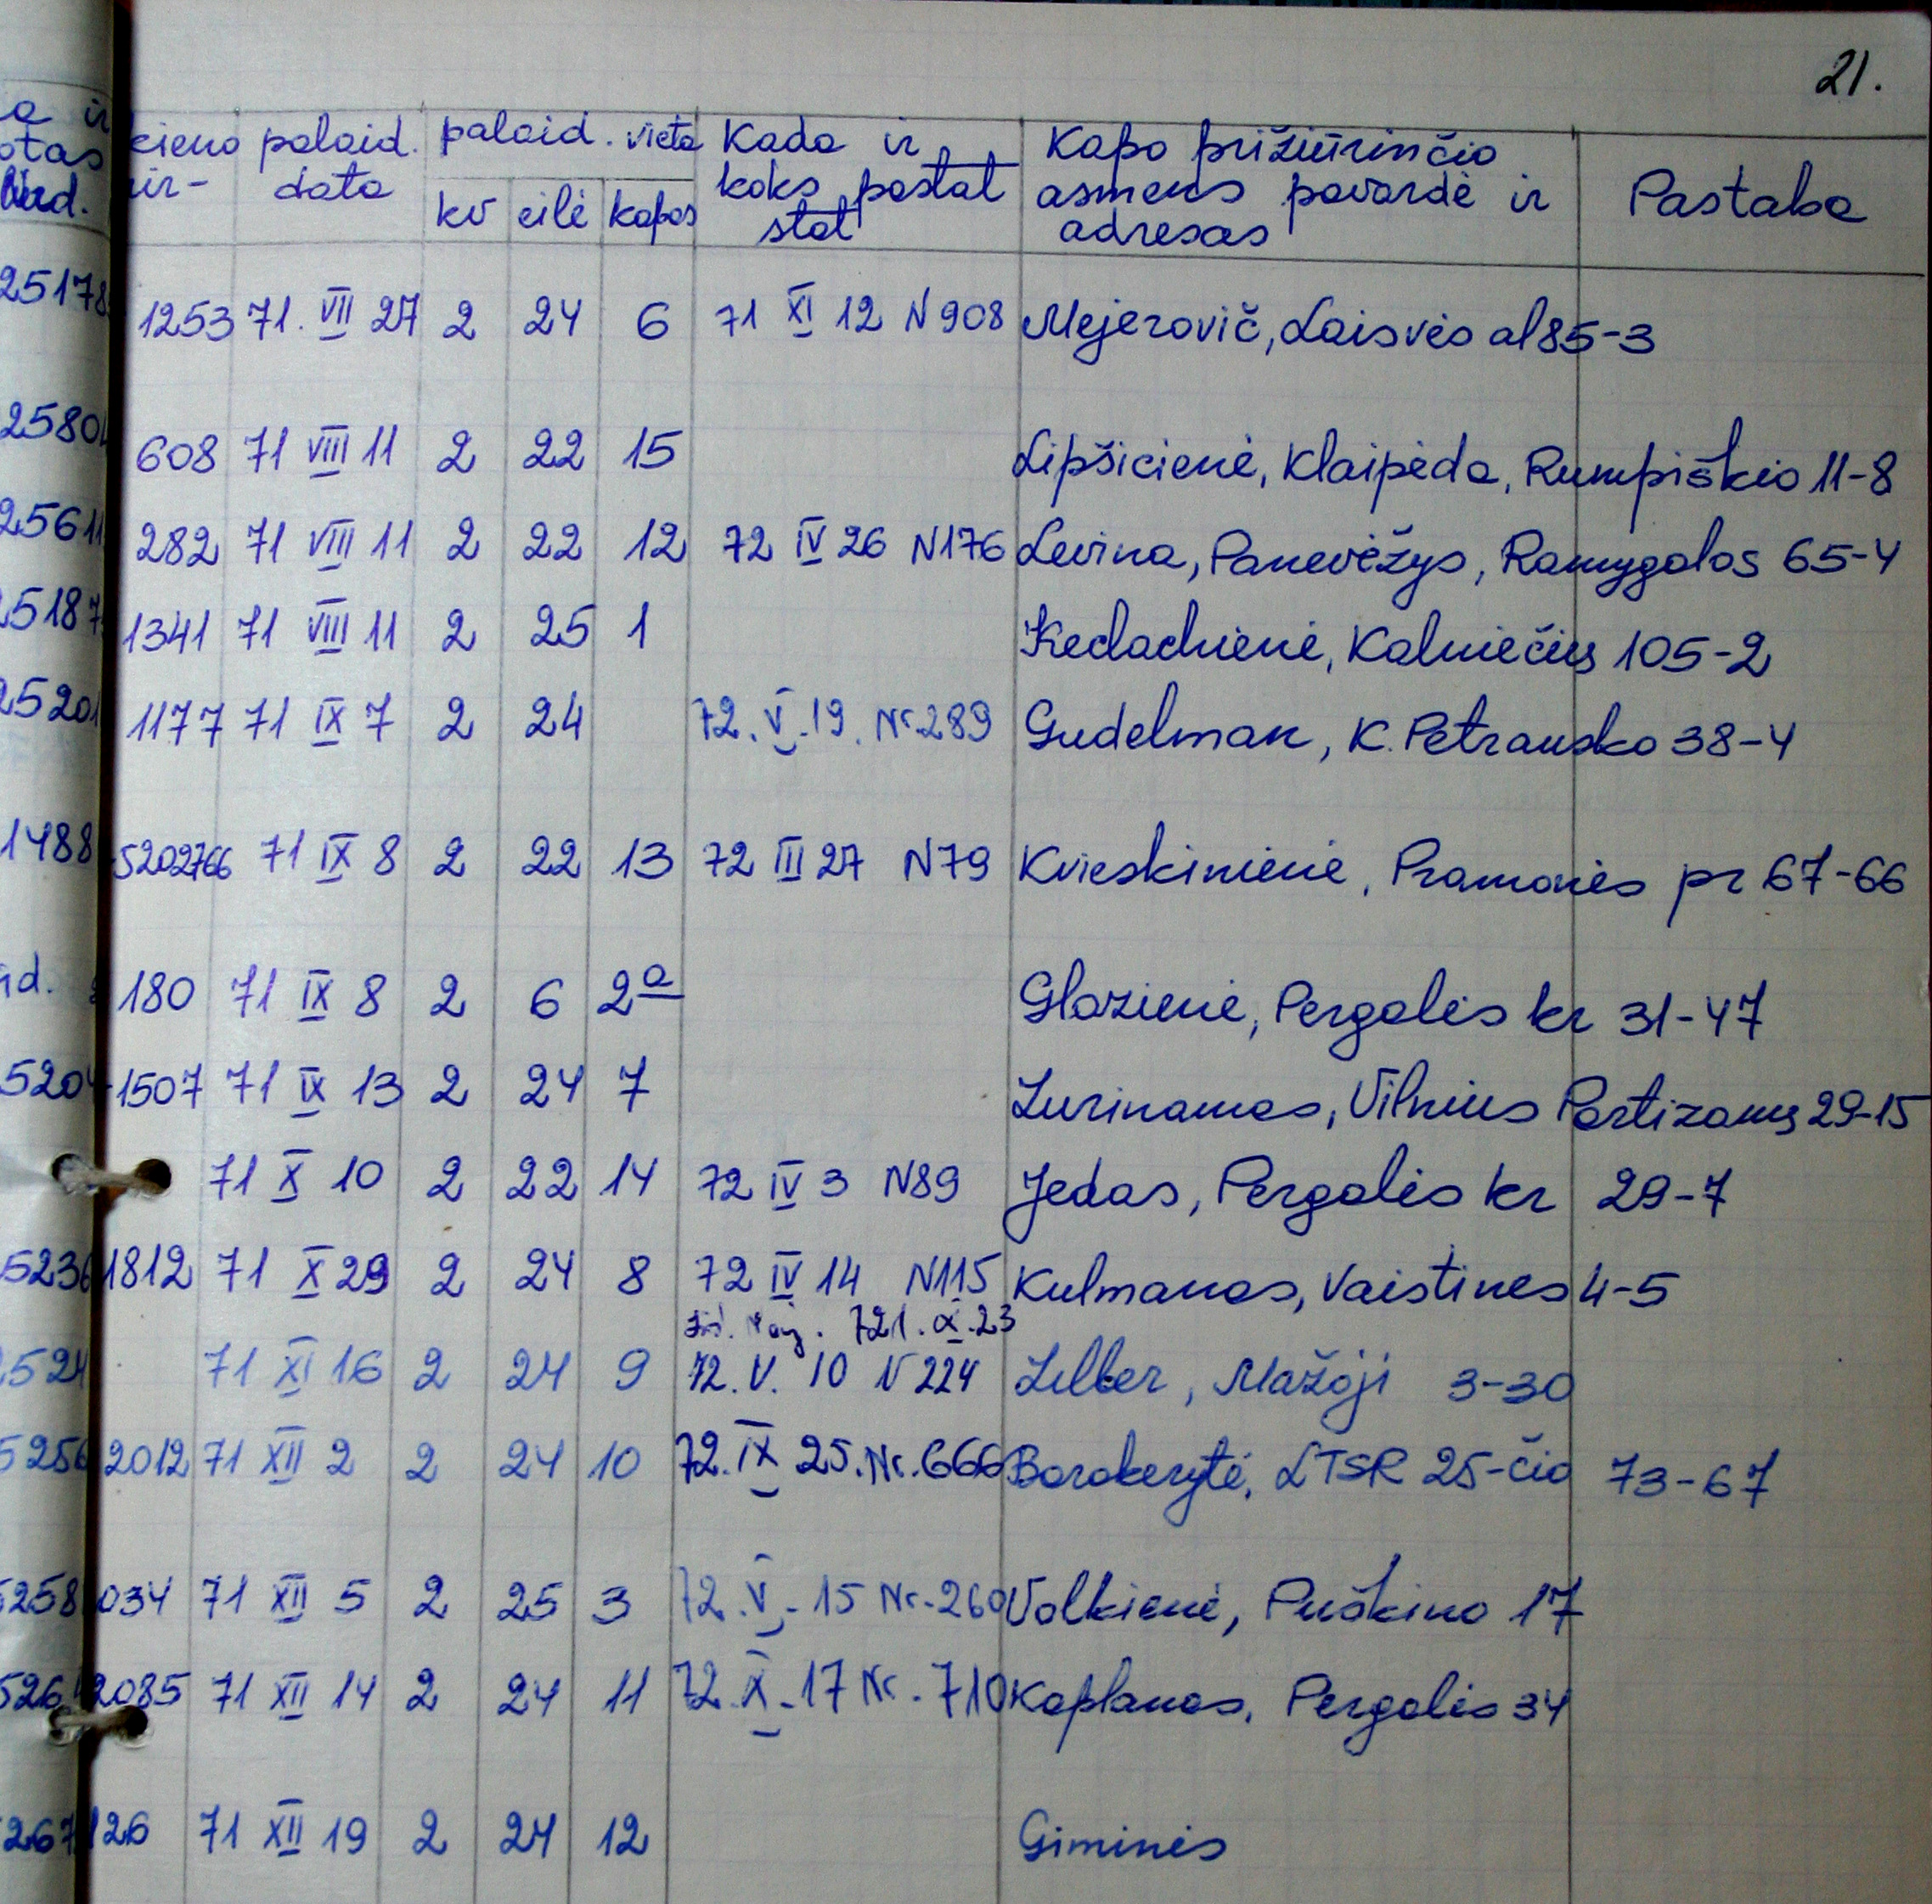 21.
a ir kieno palaid. palaid. vieta Kada ir Kapo prižiūrinčio
otas mir- data kv eilė kapas koks pastat asmens pavardė ir Pastaba
stat adresas
25178 1253 71. VII 27 2 24 6 71 XI 12 N 908 Mejerovič, Laisvės al 85-3
2580 608 71 VIII 11 2 22 15 Lipšicienė, Klaipėda, Rumpiškio 11-8
25611 282 71 VIII 11 2 22 12 72 IV 26 N176 Levina, Panevėžys, Ramygalos 65-4
25187 1341 71 VIII 11 2 25 1 Kedachienė, Kalniečių 105-2
25201 1177 71 IX 7 2 24 72. V. 19. Nr. 289 Gudelman, K. Petrausko 38-4
1488 5202766 71 IX 8 2 22 13 72 III 27 N79 Kvieskinienė, Pramonės pr 67-66
180 71 IX 8 2 6 2a Glazienė, Pergalės kr 31-47
5204 1507 71 IX 13 2 24 7 Zurinamas, Vilnius Partizanų 29-15
71 X 10 2 22 14 72 IV 3 N89 Jedas, Pergalės kr 29-7
5236 1812 71 X 29 2 24 8 72 IV 14 N115 Kulmanas, Vaistines 4-5
524 71 XI 16 2 24 9 72. V. 10 N 224 Zilber, Mažoji 3-30
5256 2012 71 XII 2 2 24 10 72. IX 25. Nr. 666 Borokerytė, LTSR 25-čio 73-67
5258 034 71 XII 5 2 25 3 72. V. 15 Nr. 260 Volkienė, Puškino 17
526 2085 71 XII 14 2 24 11 72. X. 17 Nr. 710 Kaplanas, Pergalės 34
267 126 71 XII 19 2 24 12 Giminės